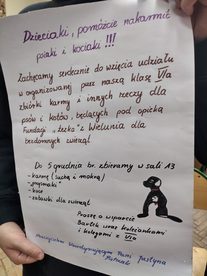 Dzieciaki, pomóżcie nakarmić
psiaki i kociaki !!!
Zachęcamy serdecznie do wzięcia udziału
w organizowanej przez naszą klasę VIa
zbiórki karmy i innych rzeczy dla
psów i kotów, będących pod opieką
Fundacji "Łezka" z Wielunia dla
bezdomnych zwierząt.
Do 5 grudnia br. zbieramy w sali 13
- karmy (suchą i mokrą)
- "przysmaki"
- koce
- zabawki dla zwierząt
Proszę o wsparcie
Bartek wraz koleżankami
i kolegami z VIa
Pani Justyna